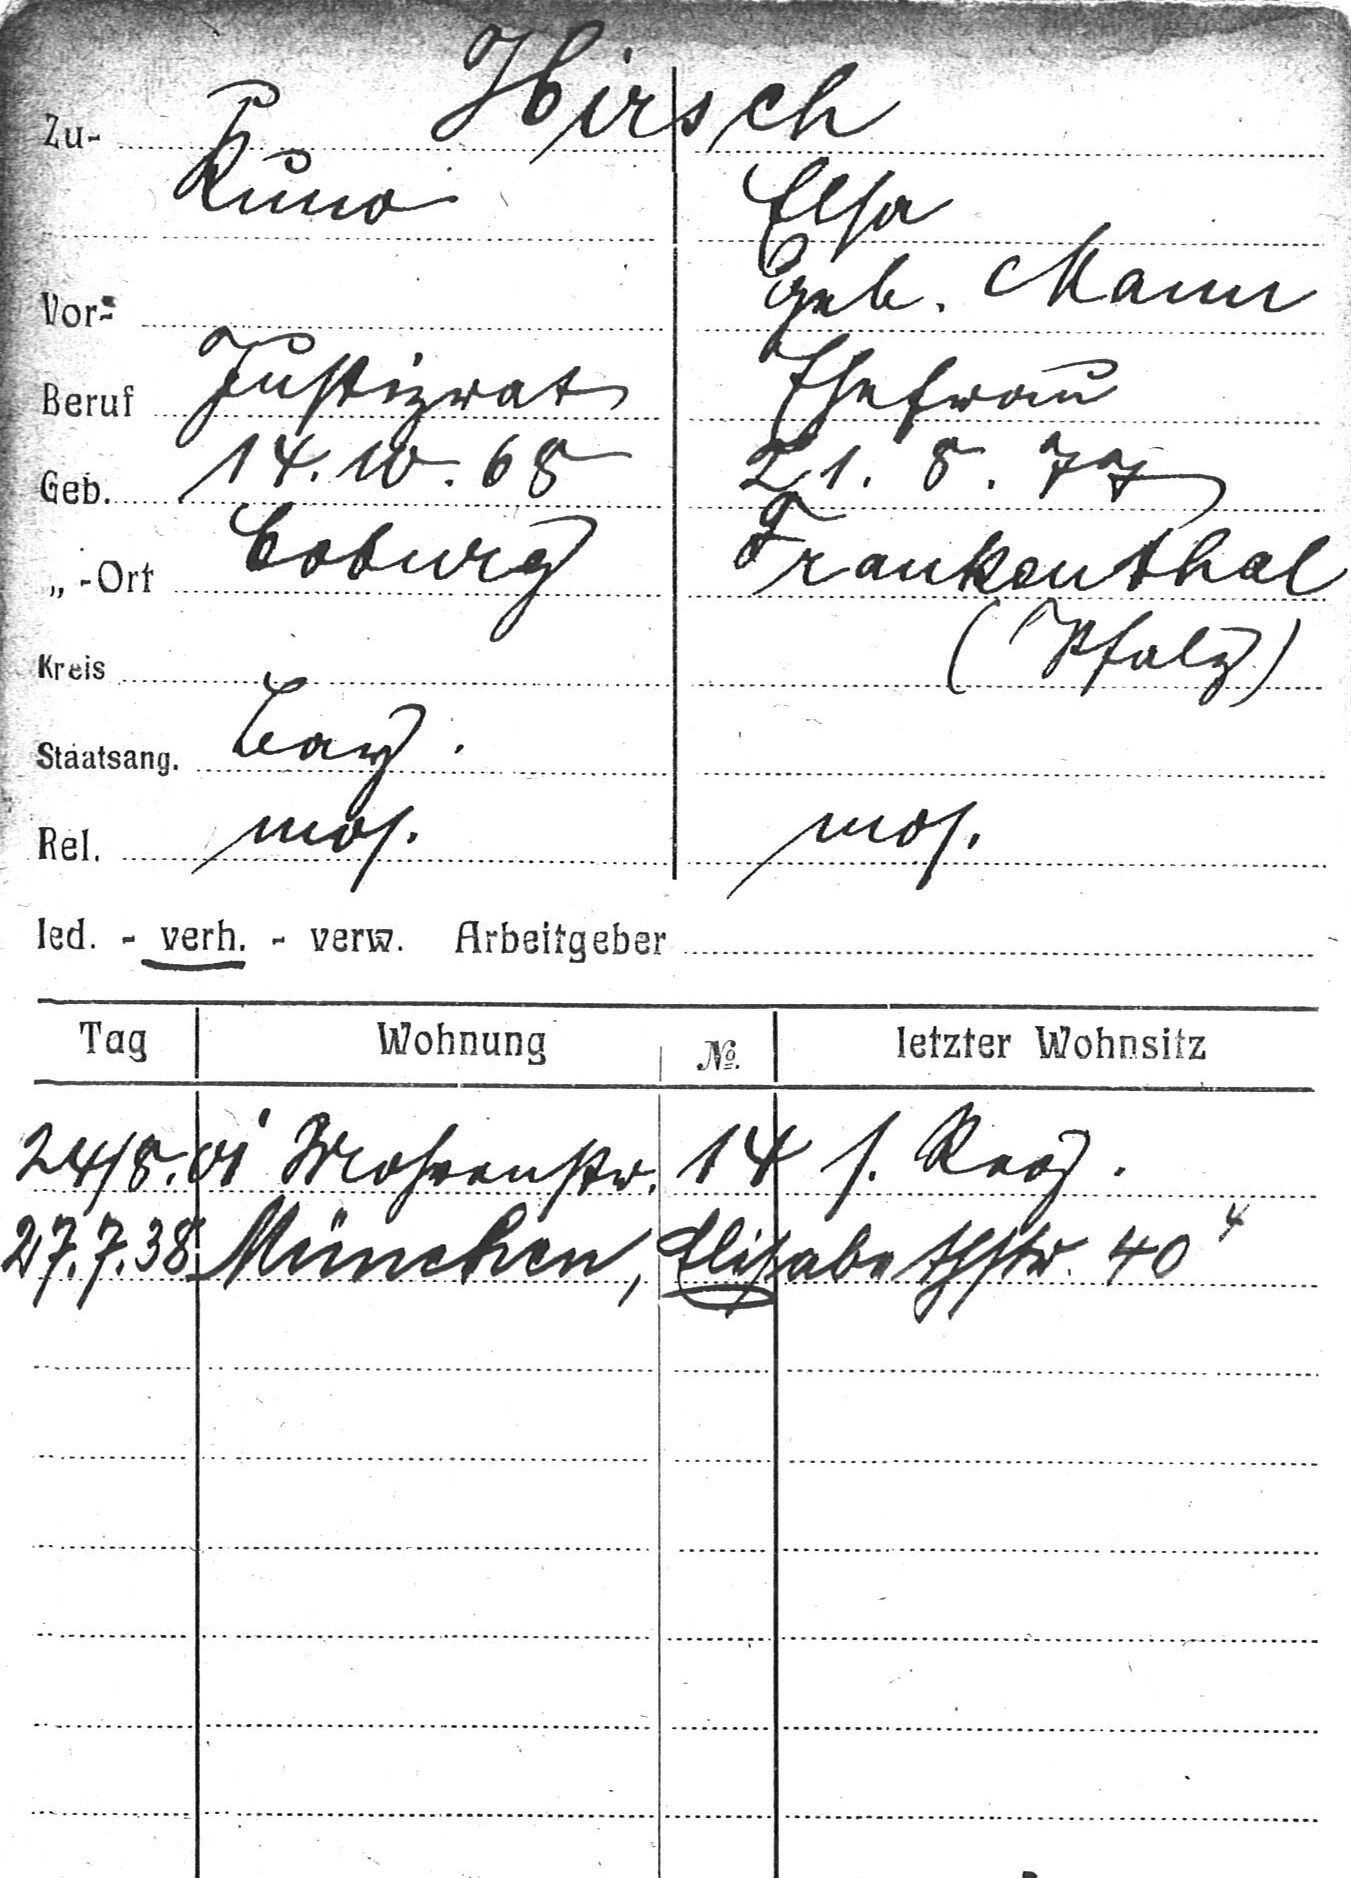 Zu- Hirsch
Kuno Elsa
Vor- geb. Mann
Beruf Justizrat Ehefrau
Geb. 14.10.68 21.8.77
„-Ort Coburg Frankenthal
Kreis (Pfalz)
Staatsang. bay.
Rel. mos. mos.
led. - verh. - verw. Arbeitgeber
Tag Wohnung № letzter Wohnsitz
24/8.01 Mohrenstr. 14 s. Reg.
27.7.38 München, Elisabethstr. 40 4